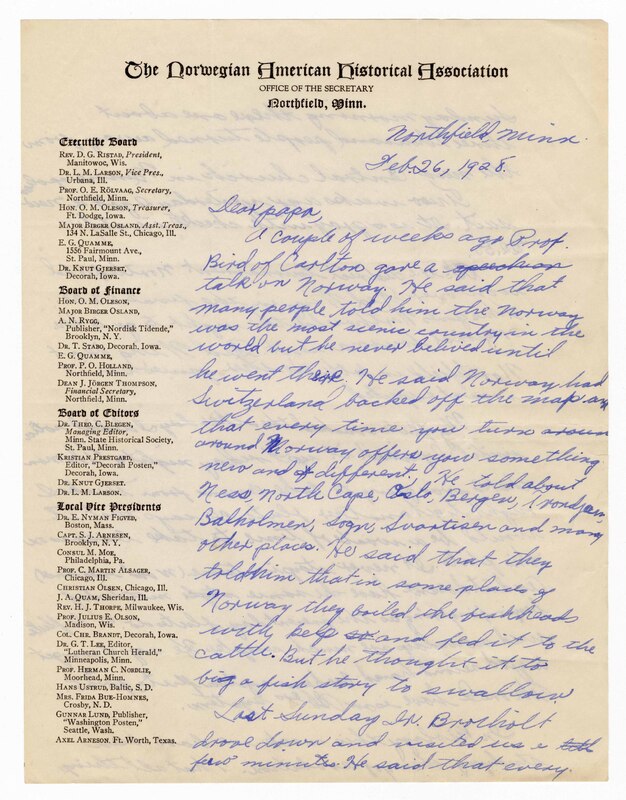 The Norwegian American Historical Association
OFFICE OF THE SECRETARY
Northfield, Minn.
Executive Board
REV. D. G. RISTAD, President,
Manitowoc, Wis.
DR. L. M. LARSON, Vice Pres.,
Urbana, Ill.
PROF. O. E. RÖLVAAG, Secretary,
Northfield, Minn.
HON. O. M. OLESON, Treasurer,
Ft. Dodge, Iowa.
MAJOR BIRGER OSLAND, Asst. Treas.,
134 N. LaSalle St., Chicago, Ill.
E. G. QUAMME,
1556 Fairmount Ave.,
St. Paul, Minn.
DR. KNUT GJERSET,
Decorah, Iowa.
Board of Finance
HON. O. M. OLESON,
MAJOR BIRGER OSLAND,
A. N. RYGG,
Publisher, "Nordisk Tidende,"
Brooklyn, N. Y.
DR. T. STABO, Decorah, Iowa.
E. G. QUAMME,
PROF. P. O. HOLLAND,
Northfield, Minn.
DEAN J. JÖRGEN THOMPSON,
Financial Secretary,
Northfield, Minn.
Board of Editors
DR. THEO. C. BLEGEN,
Managing Editor,
Minn. State Historical Society,
St. Paul, Minn.
KRISTIAN PRESTGARD,
Editor, "Decorah Posten,"
Decorah, Iowa.
DR. KNUT GJERSET.
DR. L. M. LARSON.
Local Vice Presidents
DR. E. NYMAN FIGVED,
Boston, Mass.
CAPT. S. J. ARNESEN,
Brooklyn, N. Y.
CONSUL M. MOE,
Philadelphia, Pa.
PROF. C. MARTIN ALSAGER,
Chicago, Ill.
CHRISTIAN OLSEN, Chicago, Ill.
J. A. QUAM, Sheridan, Ill.
REV. H. J. THORPE, Milwaukee, Wis.
PROF. JULIUS E. OLSON,
Madison, Wis.
COL. CHR. BRANDT, Decorah, Iowa.
DR. G. T. LEE, Editor,
"Lutheran Church Herald,"
Minneapolis, Minn.
PROF. HERMAN C. NORDLIE,
Moorhead, Minn.
HANS USTRUD, Baltic, S. D.
MRS. FRIDA BUE-HOMNES,
Crosby, N. D.
GUNNAR LUND, Publisher,
"Washington Posten,"
Seattle, Wash.
AXEL ARNESON. Ft. Worth, Texas.
Northfield, Minn.
Feb. 26, 1928.
Dear papa,
A couple of weeks ago Prof.
Bird of Carlton gave a
talk on Norway. He said that
many people told him the Norway
was the most scenic country in the
world but he never belived until
he went there. He said Norway had
Switzerland backed off the map and
that every time you turn around
around Norway offers you something
new and different. He told about
Ness, North Cape, Oslo, Bergen, Trondjem,
Balholmen, Sogn, Svartisen and many
other places. He said that they
told him that in some places of
Norway they boiled the fishheads
with kelp and fed it to the
cattle. But he thought it to
big a fish story to swallow.
Last Sunday Dr.
drove down and visited us a
few minutes. He said that every